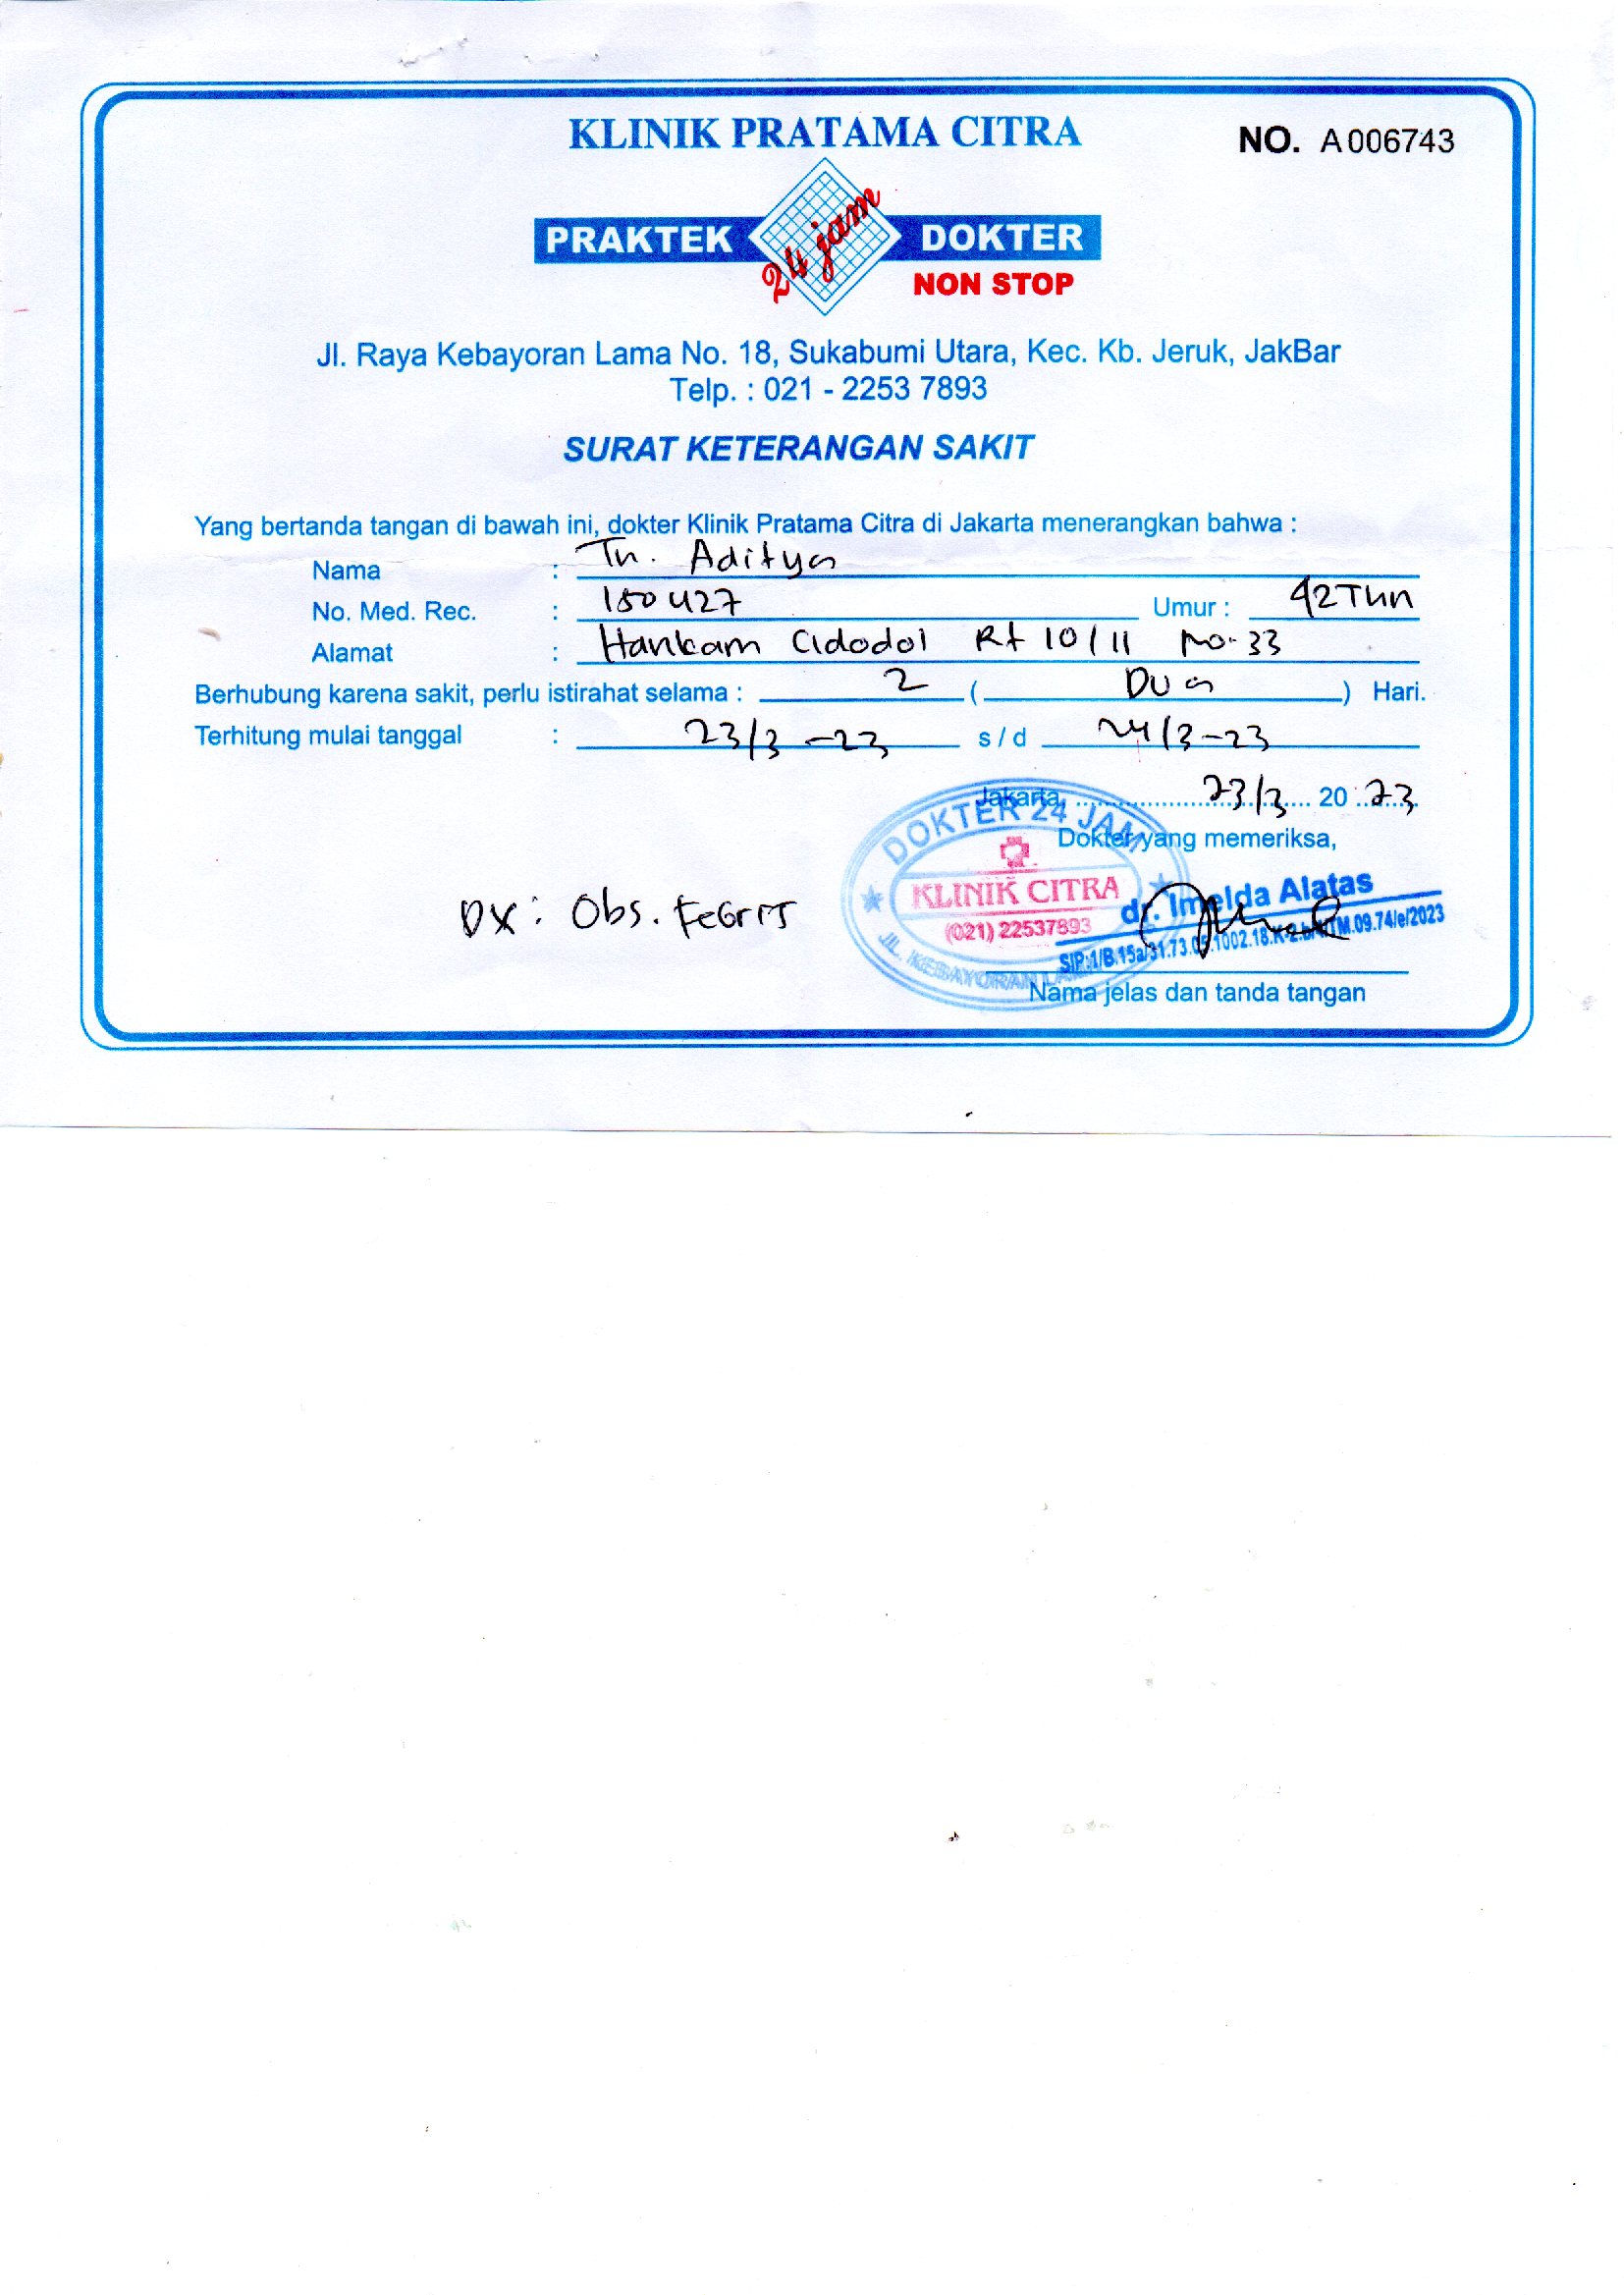 KLINIK PRATAMA CITRA
NO. A 006743
PRAKTEK 24 jam DOKTER
NON STOP
Jl. Raya Kebayoran Lama No. 18, Sukabumi Utara, Kec. Kb. Jeruk, JakBar
Telp. : 021 - 2253 7893
SURAT KETERANGAN SAKIT
Yang bertanda tangan di bawah ini, dokter Klinik Pratama Citra di Jakarta menerangkan bahwa :
Nama : Tn. Aditya
No. Med. Rec. : 150427 Umur : 42 Thn
Alamat : Hankam Cidodol Rt 10/11 no. 33
Berhubung karena sakit, perlu istirahat selama : 2 ( Dua ) Hari.
Terhitung mulai tanggal : 23/3 -23 s / d 24/3-23
Jakarta, 23/3 20 23
Dokter yang memeriksa,
DOKTER 24 JAM
KLINIK CITRA
(021) 22537893
JL. KEBAYORAN
dr. Imelda Alatas
DX : Obs. 
Nama jelas dan tanda tangan